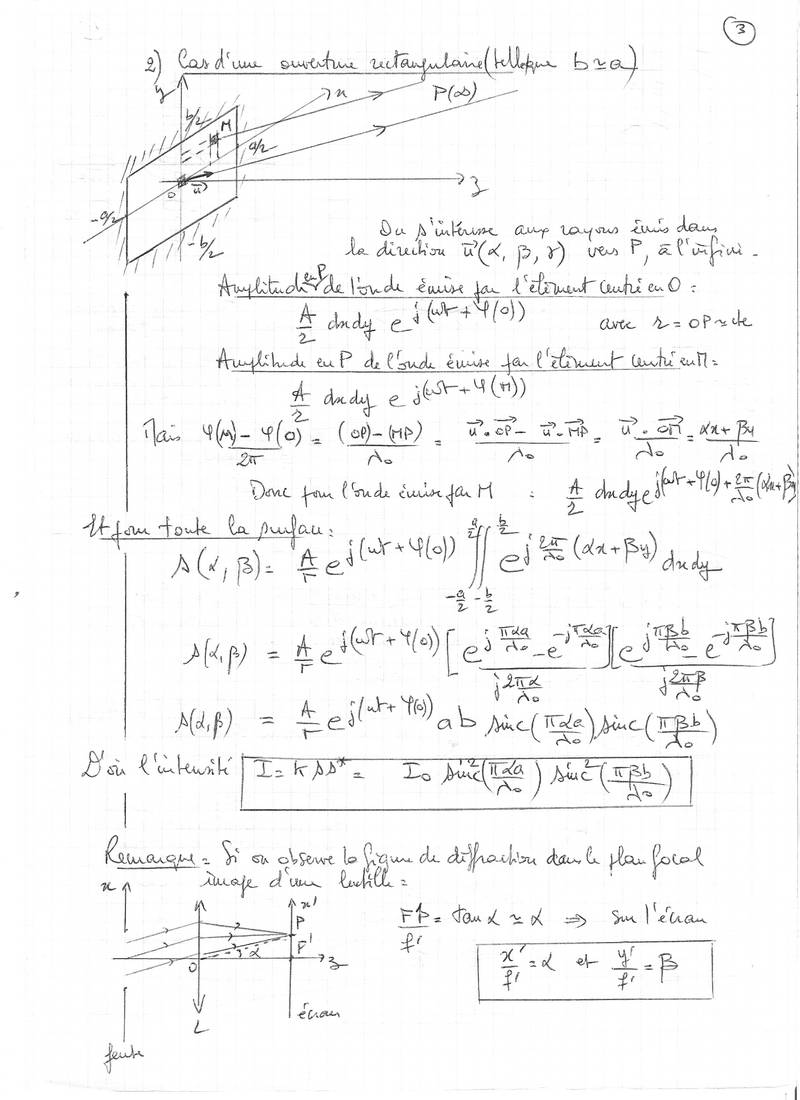 3
2) Cas d'une ouverture rectangulaire (telle que b ≃ a)
y
x
P(∞)
b/2
M
a/2
O
u⃗
z
-a/2
-b/2
On s'intéresse aux rayons émis dans
la direction u⃗(α, β, γ) vers P, à l'infini.
Amplitude en P de l'onde émise par l'élément centré en O :
A/r dxdy e^{j(ωt + φ(O))} avec r = OP ≃ cte
Amplitude en P de l'onde émise par l'élément centré en M :
A/r dxdy e^{j(ωt + φ(M))}
Mais (φ(M) - φ(O))/2π = ((OP) - (MP))/λ₀ = (u⃗·OP⃗ - u⃗·MP⃗)/λ₀ = (u⃗·OM⃗)/λ₀ = (αx + βy)/λ₀
Donc pour l'onde émise par M : A/r dxdy e^{j(ωt + φ(O) + 2π/λ₀ (αx + βy))}
Et pour toute la surface :
s(α, β) = A/r e^{j(ωt + φ(O))} ∫_{-a/2}^{a/2} ∫_{-b/2}^{b/2} e^{j 2π/λ₀ (αx + βy)} dxdy
s(α, β) = A/r e^{j(ωt + φ(O))} [(e^{jπαa/λ₀} - e^{-jπαa/λ₀})/(j 2πα/λ₀)] [(e^{jπβb/λ₀} - e^{-jπβb/λ₀})/(j 2πβ/λ₀)]
s(α, β) = A/r e^{j(ωt + φ(O))} ab sinc(παa/λ₀) sinc(πβb/λ₀)
D'où l'intensité I = k s s* = I₀ sinc²(παa/λ₀) sinc²(πβb/λ₀)
Remarque : Si on observe la figure de diffraction dans le plan focal
image d'une lentille :
x
x'
P
F'
α
z
O
L
écran
fente
F'P/f' = tan α ≃ α ⇒ sur l'écran
x'/f' = α et y'/f' = β